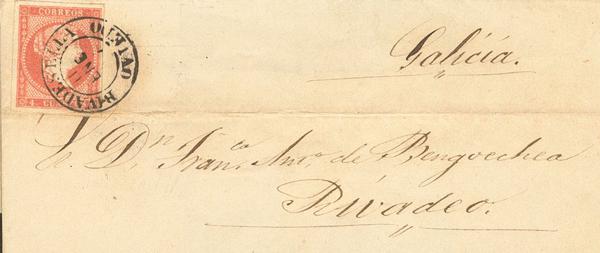 CORREOS
4 CU
RIVADESELLA OVIEDO
ENE
Galicia.
Dn. Franco. Anto. de Bengoechea
Rivadeo.